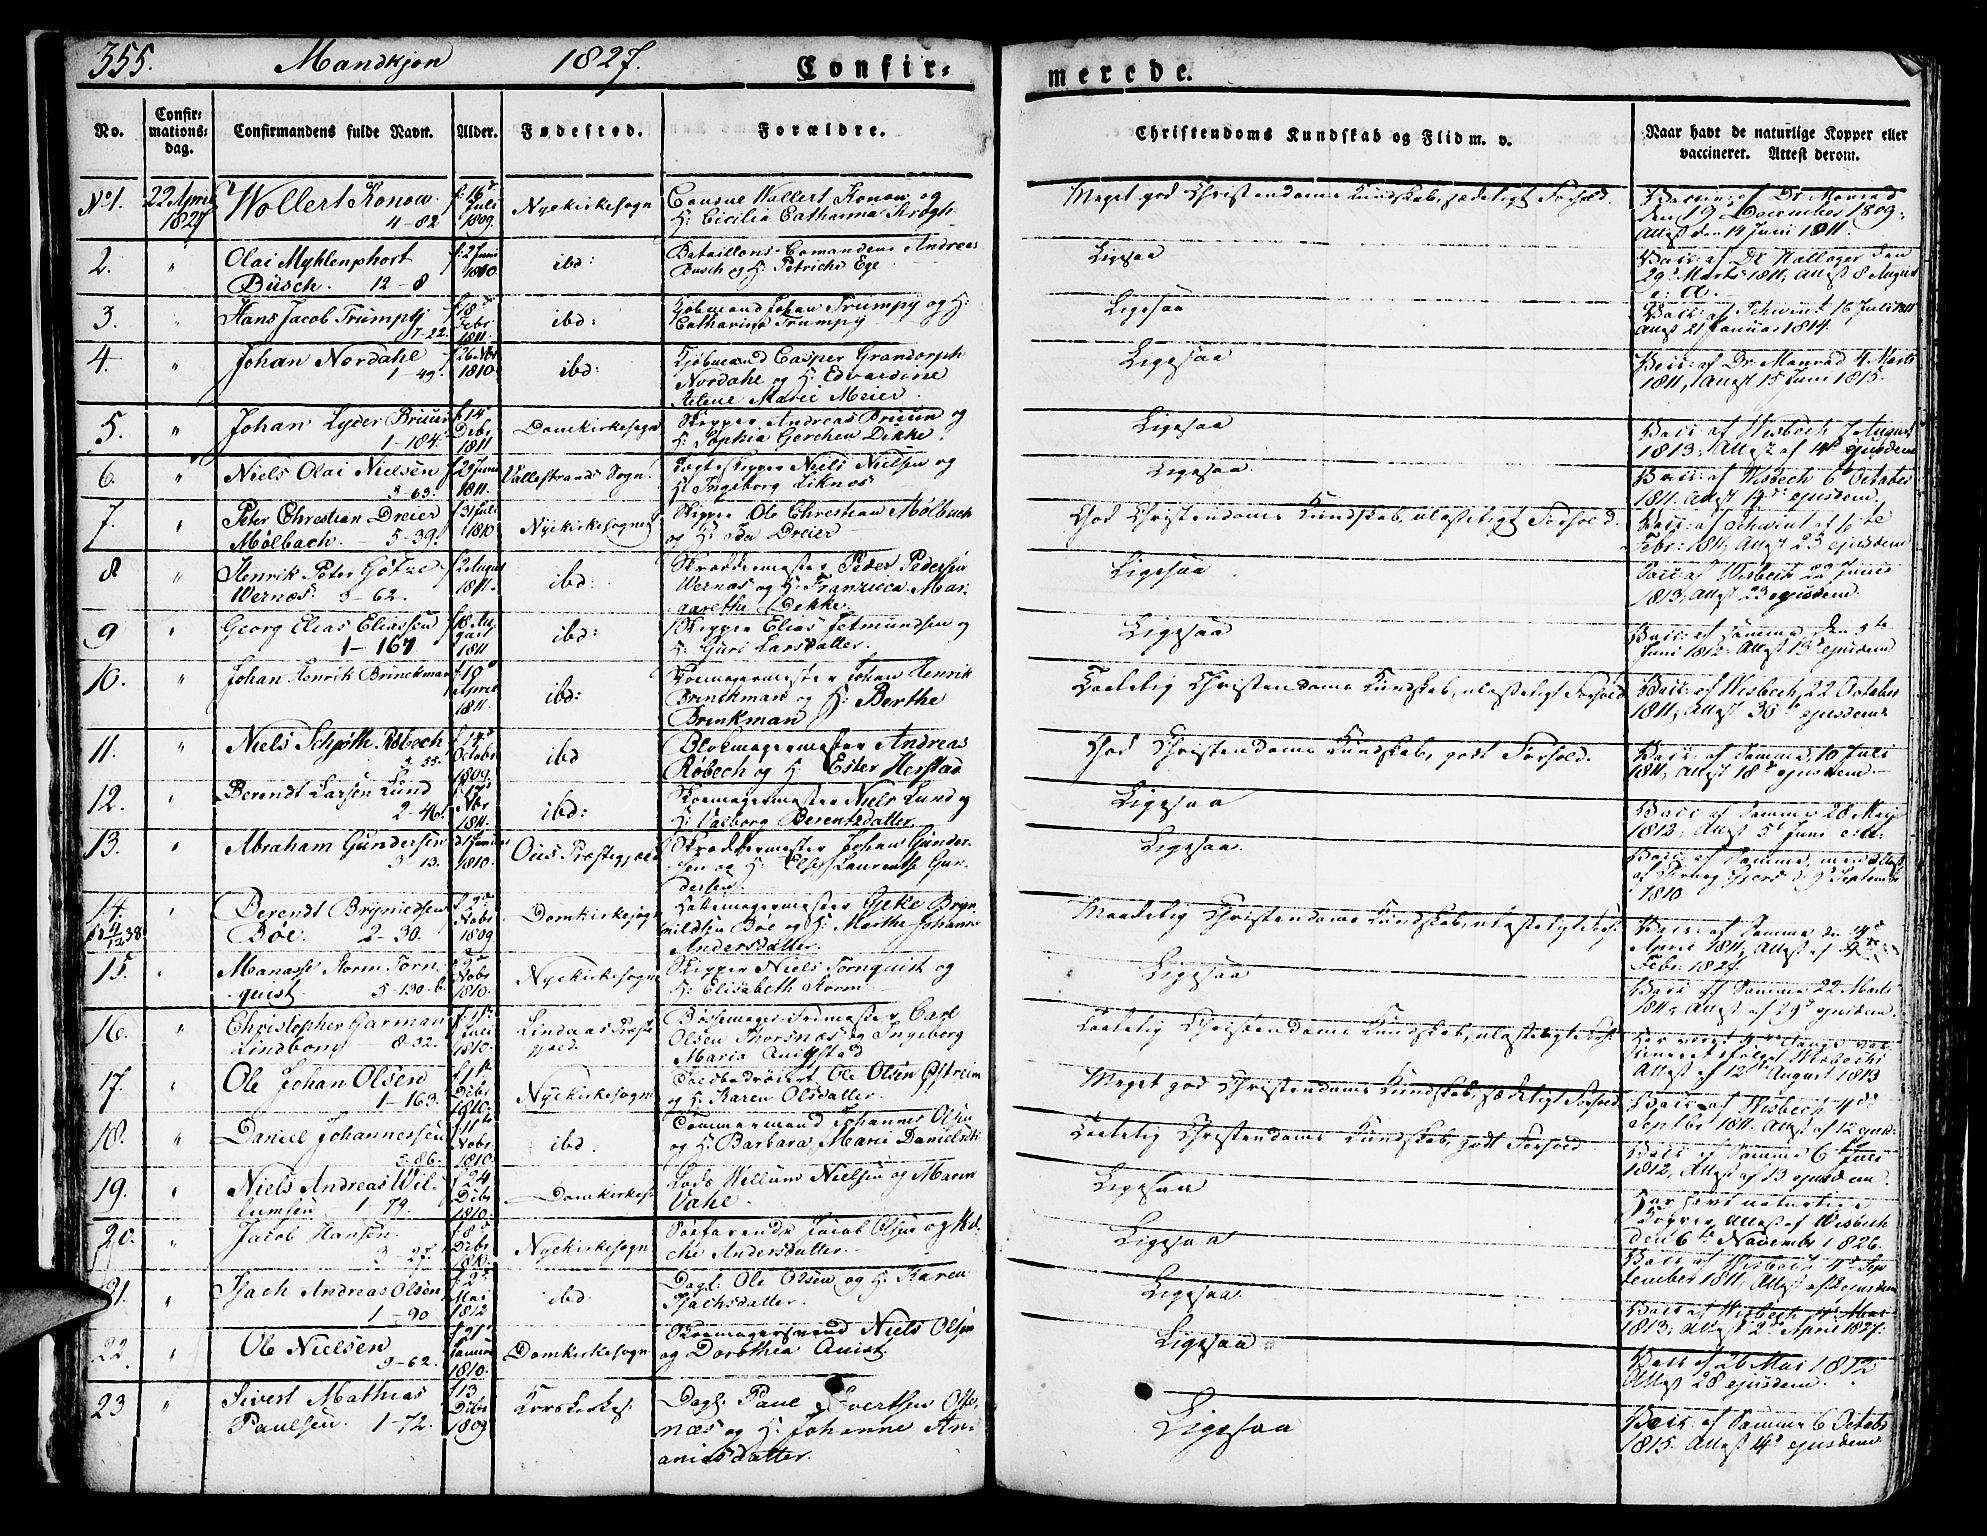 355. Mandkjøn 1827. Confir=
merede.
No.
Confir=
mations=
dag.
Confirmandens fulde Navn.
Alder.
Fødested.
Forældre.
Christendoms Kundskab og Flid m. v.
Naar havt de naturlige Kopper eller
vaccineret. Attest derom.
No 1. 22 April Wollert Konow. f. 16 Nyekirkesogn Consul Wollert Konow og
1827 4-82 Juli 1809. H: Cicilia Catharina Krogh.
Meget god Christendoms Kundskab, sædeligt Forhold.
Vaccin: af Dr Monrad
den 19 December 1809,
Attest den 14 Juni 1811.
2. " Olai Myhlenphort f. 2 Juni ibd: Batallions-Comandeur Andreas
Büsch. 12-8 1810 Busch og H: Petriche Ege
Ligesaa
29 Marts 1811, Attest 8 August
3. " Hans Jacob Trumpÿ f. 18 ibd: Kjøbmand Johan Trumpÿ og H:
7-22. Febr. 1811. Catharina Trumpÿ
Ligesaa
Vacc: af Schwint 16 Juli 1811
Attest 21 Januar 1814.
4. " Johan Nordahl f. 26 Nbr ibd: Kjøbmand Casper Grandorph
1 49. 1810. Nordahl og H: Edvardine
Helene Marie Meier.
Ligesaa
Vacc: af Dr. Monrad 4 Marts
1811, Attest 15 Juni 1815.
5. " Johan Lyder Bruun f. 14 Domkirkesogn Skipper Andreas Bruun og
1-184. Debr 1811 H: Sophia Gerchen Dekke.
Ligesaa
Vacc: af Wisbech 7 August
1813, Attest af 14 ejusdem
6. " Niels Olai Nielsen f. 29 Juni Vallestrands Sogn. Niels Nielsen og
3 63. 1811. H: Ingeborg Liknes
Ligesaa.
Vacc: af Wisbech 6 October
1811. Attest 19 ejusdem.
7. " Peter Christian Dreier f. 31 Juli Nyekirkesogn Skipper Ole Christian Mølbach
Mølbach. 5-39. 1810 og H: Ida Dreier
God Christendoms Kundskab, ulasteligt Forhold.
Vacc: af Schwint af 1ste
Febr: 1811, Attest 23 ejusdem
8 " Henrik Peter Götze f. 2 August ibd: Skræddermester Peder Pedersen
Wernæs. 3-62. 1811. Wernæs og H: Franzisca Mar-
garethe Dekke.
Ligesaa
Vacc: af Wisbech 22 Junii
1813, Attest 23 ejusdem.
9 " Georg Elias Eliassen f. 18 Au- ibd: Skipper Elias Jetmundsen og
1-167 gust 1811 H: Guri Larsdatter.
Ligesaa
Vacc: af Samme den 5te
Juni 1812. Attest 13 ejusdem
10. " Johan Henrik Brinckman f. 10 ibd: Skomagermester Johan Henrik
April 1811. Brinkman og H: Berthe
Brinkman
Taalelig Christendoms Kundskab, ulasteligt Forhold
Vacc: af Wisbech, 22 October
1811, Attest 30 ejusdem
11. " Niels Schjøth Røbech f. 14 ibd Blokmagermester Andreas
3-55. Octobr 1809. Røbech og H: Ester Herstad
God Christendoms Kundskab, godt Forhold.
Vacc: af Samme, 10 Juli
1811, Attest 18 ejusdem.
12. " Berendt Larsen Lund f. 17 ibd: Skomagermester Niels Lund og
2-46. Nbr 1811. H: Valborg Berentsdatter.
Ligesaa
Vacc: af Samme 28 Maji
1812, Attest 5 Juni
13. " Abraham Gundersen Januar Ous Præstegjæld Skræddermester Johan Gunder-
3 13. 1810. sen og H: Else Laurentse Gun-
dersen.
Ligesaa.
Vacc: af Samme, d. 9 September
1810.
14. " Berendt Brÿnildsen f. 9 Domkirkesogn Hattemagermester Gjeke Bryn-
4/12 38 Böe. 2-30. Nobr 1809 nildsen Böe og H: Martha Johanna
Andersdatter.
Maadelig Christendoms Kundskab, ulasteligt Forh:
Vacc: af Samme den
April 1811, Attest af
Febr: 1827.
15. " Manasse Storm Torn- Nobr Nyekirkesogn Skipper Niels Tornquist og
quist 5-130-b. 1810. H: Elisabeth Storm
Ligesaa
Vacc: af Samme 22 Marts
1811, Attest af 29 ejusdem.
16. " Christopher Garman Juli Lindaas Præste- Børsemager Carl
Lindbom 8-32. 1810. gjeld. Olsen Thorsnæs og Ingeborg
Maria
Taalelig Christendoms Kundskab, ulasteligt Forh:
Har været
Wisbechs
Attest af 12 August 1813
17. " Ole Johan Olsen Debr Nyekirkesogn Ole Olsen Østreim
1-163. 1810. og H: Karen Olsdatter.
Meget god Christendoms Kundskab, sædeligt Forhold
Vacc: af Wisbech 4de
Septbr 1811. Attest af 12 ejusd:
18. " Daniel Johannessen f. 11 ibd. Tømmermand Johannes Olsen
3-86. Nobr 1810. og H: Barbara Marie Danielsdt:
Taalelig Christendoms Kundskab, godt Forhold.
Vacc: af Samme 6 Juli
1812, Attest af 13 ejusdem.
19. " Niels Andreas Wil- f. 24 Domkirkes: Lods Willum Nielsen og Maren
lumsen 1-79. Debr 1810. Vahl.
Ligesaa
Har havt naturlige
Kopper, Attest af Wisbech
den 6te November 1826.
20. " Jacob Hansen. f. 8 Nyekirkesogn Søefarende Jacob Olsen og
3-27. Debr 1810. Andersdatter.
Ligesaa
Vacc: af Wisbech 4 Sep-
tember 1811. Attest af 12 ejusdem
21. " Isach Andreas Olsen f. 2 ibd. Dagl: Ole Olsen og H: Karen
1-90 Mai 1812 Isachsdatter.
Ligesaa
Vacc: af Wisbech Mai
1813, Attest 2 April 1827.
22. " Ole Nielsen f. 21 Domkirkesogn Skomagersvend Niels Olsen
9-62. Januar 1810. og Dorothea Qvist.
Ligesaa
Vacc: af 26 Mai 1812
Attest 28 ejusdem.
23 " Sivert Mathias f. 13 Korskirkes: Dagl: Paul Sivertsen Oste-
Paulsen. 1-72. Debr 1809 næs og H: Johanne An-
aniasdatter.
Ligesaa
Vacc: af Samme 6 Octobr
1815. Attest 14 ejusdem